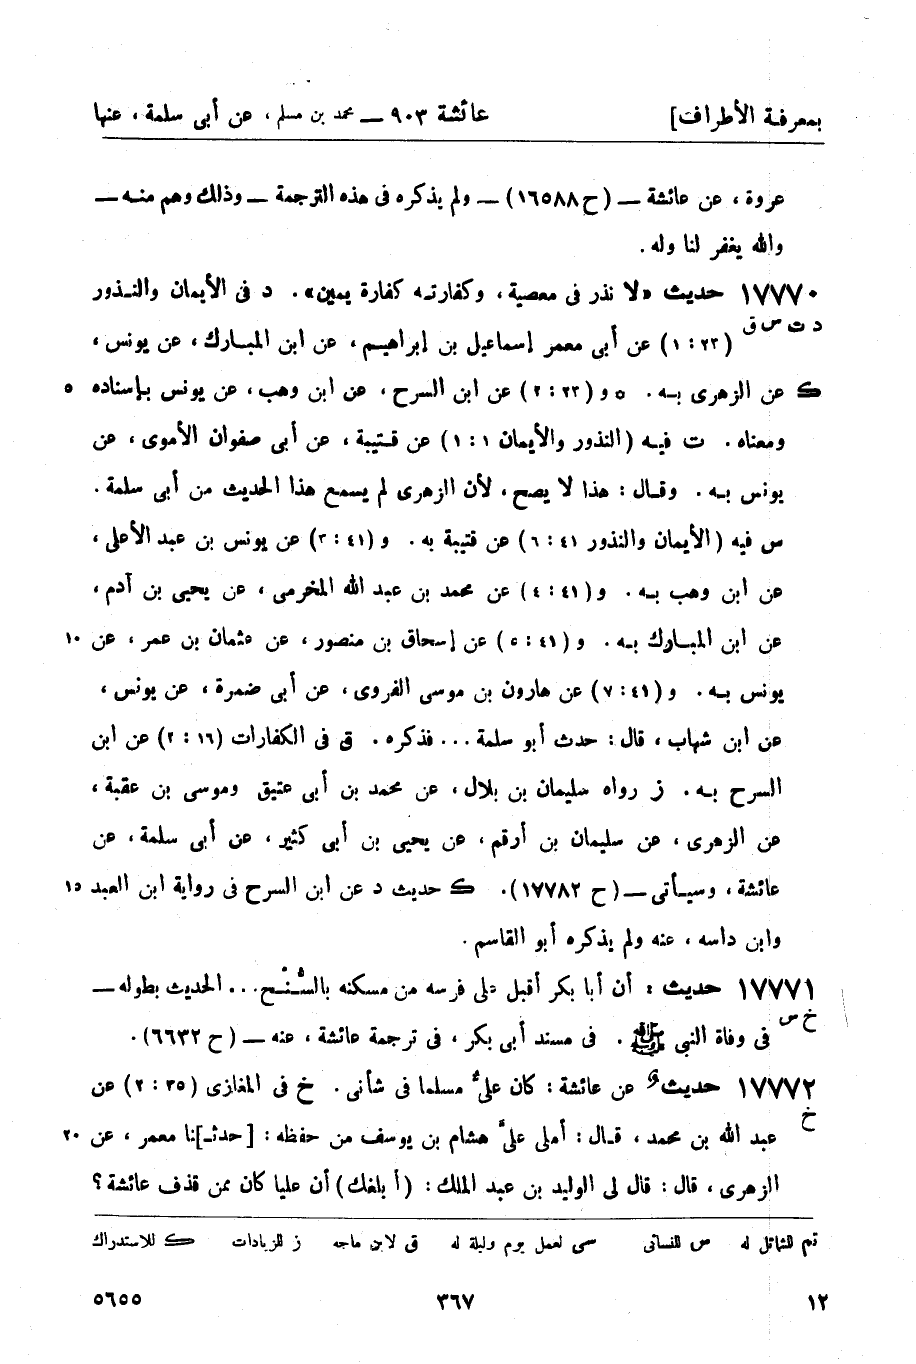 بمعرفة الأطراف] عائشة ٩٠٣ — محمد بن مسلم ، عن أبى سلمة ، عنها
عروة ، عن عائشة — (ح ١٦٥٨٨) — ولم يذكره فى هذه الترجمة — وذلك وهم منه —
والله يغفر لنا وله .
١٧٧٧٠ حديث «لا نذر فى معصية ، وكفارته كفارة يمين» . د فى الأيمان والنذور
د ت س ق (٢٣ : ١) عن أبى معمر إسماعيل بن إبراهيم ، عن ابن المبارك ، عن يونس ،
ك عن الزهرى به . ٥ و (٢٣ : ٢) عن ابن السرح ، عن ابن وهب ، عن يونس بإسناده ٥
ومعناه . ت فيه (النذور والأيمان ١ : ١) عن قتيبة ، عن أبى صفوان الأموى ، عن
يونس به . وقال : هذا لا يصح ، لأن الزهرى لم يسمع هذا الحديث من أبى سلمة .
س فيه (الأيمان والنذور ٤١ : ٦) عن قتيبة به . و (٤١ : ٣) عن يونس بن عبد الأعلى ،
عن ابن وهب به . و (٤١ : ٤) عن محمد بن عبد الله المخرمى ، عن يحيى بن آدم ،
عن ابن المبارك به . و (٤١ : ٥) عن إسحاق بن منصور ، عن عثمان بن عمر ، عن ١٠
يونس به . و (٤١ : ٧) عن هارون بن موسى الفروى ، عن أبى ضمرة ، عن يونس ،
عن ابن شهاب ، قال : حدث أبو سلمة ... فذكره . ق فى الكفارات (١٦ : ٢) عن ابن
السرح به . ز رواه سليمان بن بلال ، عن محمد بن أبى عتيق وموسى بن عقبة ،
عن الزهرى ، عن سليمان بن أرقم ، عن يحيى بن أبى كثير ، عن أبى سلمة ، عن
عائشة ، وسيأتى — (ح ١٧٧٨٢) . ك حديث د عن ابن السرح فى رواية ابن العبد ١٥
وابن داسه ، عنه ولم يذكره أبو القاسم .
١٧٧٧١ حديث : أن أبا بكر أقبل على فرسه من مسكنه بالسُّنْح ... الحديث بطوله —
خ س فى وفاة النبى ﷺ . فى مسند أبى بكر ، فى ترجمة عائشة ، عنه — (ح ٦٦٣٢) .
١٧٧٧٢ حديث عن عائشة : كان علىٌّ مسلما فى شأنى . خ فى المغازى (٣٥ : ٢) عن
خ عبد الله بن محمد ، قال : أملى علىَّ هشام بن يوسف من حفظه : [حدثـ]نا معمر ، عن ٢٠
الزهرى ، قال : قال لى الوليد بن عبد الملك : (أ بلغك) أن عليا كان ممن قذف عائشة ؟
تم للشمائل له س للنسائى سى لعمل يوم وليلة له ق لابن ماجه ز للزيادات ك للاستدراك
١٢ ٣٦٧ ٥٦٥٥